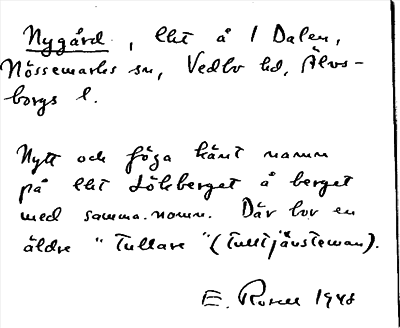 Nygård, lht å 1 Dalen,
Nössemarks sn, Vedbo hd, Älvs-
borgs l.
Nytt och föga känt namn
på lht Lökberget å berget
med samma namn. Där bor en
äldre "Tullare" (Tulltjänsteman).
E. 1948